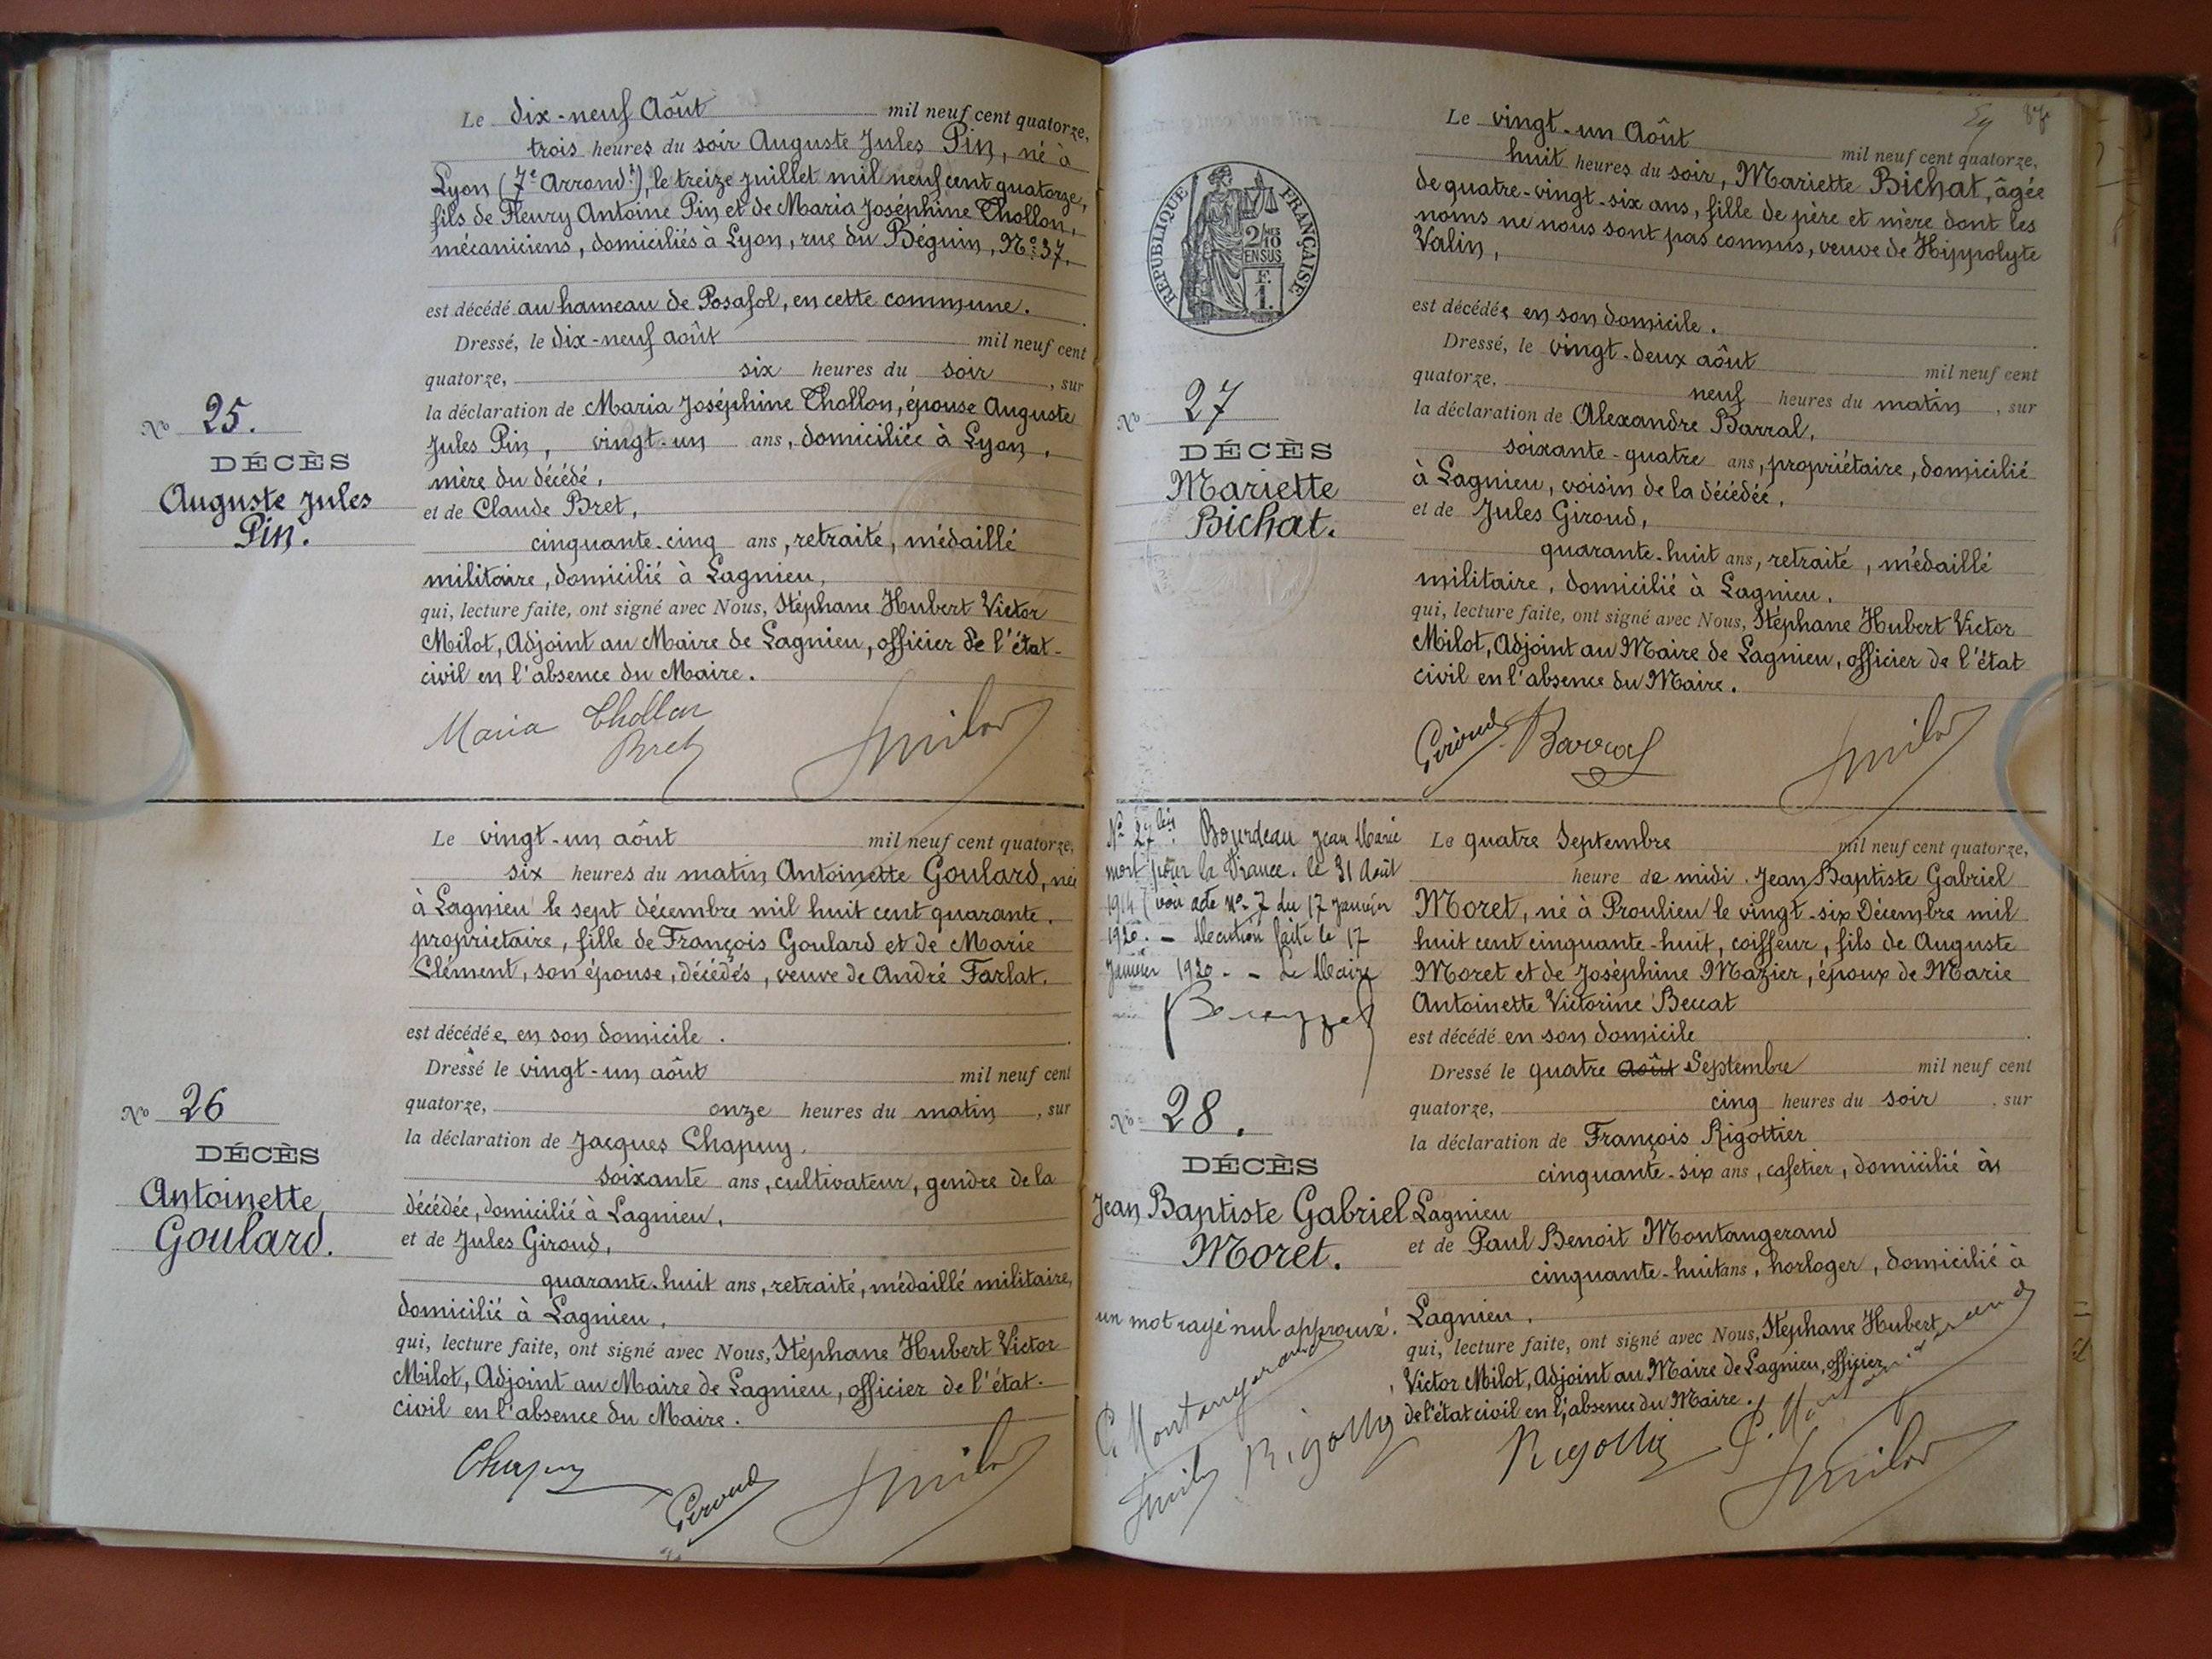 Le dix-neuf Août mil neuf cent quatorze,
trois heures du soir Auguste Jules Pin, né à
Lyon (7e Arrondt), le treize juillet mil neuf cent quatorze,
fils de Fleury Antoine Pin et de Maria Joséphine Chollon,
mécaniciens, domiciliés à Lyon, rue du Béguin, No 37,
est décédé au hameau de Posafol, en cette commune.
Dressé, le dix-neuf août mil neuf cent
quatorze, six heures du soir, sur
la déclaration de Maria Joséphine Chollon, épouse Auguste
Jules Pin, vingt-un ans, domiciliée à Lyon,
mère du décédé,
et de Claude Bret,
cinquante-cinq ans, retraité, médaillé
militaire, domicilié à Lagnieu,
qui, lecture faite, ont signé avec Nous, Stéphane Hubert Victor
Milot, Adjoint au Maire de Lagnieu, officier de l'état-
civil en l'absence du Maire.
No 25.
DÉCÈS
Auguste Jules
Pin.
Maria Chollon
Bret
Smilot
Le vingt-un août mil neuf cent quatorze,
six heures du matin Antoinette Goulard, née
à Lagnieu le sept décembre mil huit cent quarante.
propriétaire, fille de François Goulard et de Marie
Clément, son épouse, décédés, veuve de André Farlat.
est décédée, en son domicile.
Dressé le vingt-un août mil neuf cent
quatorze, onze heures du matin, sur
la déclaration de Jacques Chapuy.
soixante ans, cultivateur, gendre de la
décédée, domicilié à Lagnieu,
et de Jules Giroud,
quarante-huit ans, retraité, médaillé militaire,
domicilié à Lagnieu,
qui, lecture faite, ont signé avec Nous, Stéphane Hubert Victor
Milot, Adjoint au Maire de Lagnieu, officier de l'état-
civil en l'absence du Maire.
No 26
DÉCÈS
Antoinette
Goulard.
Chapuy
Giroud
Smilot
87
Le vingt-un Août mil neuf cent quatorze,
huit heures du soir, Mariette Bichat, âgée
de quatre-vingt-six ans, fille de père et mère dont les
noms ne nous sont pas connus, veuve de Hippolyte
Valin,
est décédée en son domicile.
Dressé, le vingt-deux août mil neuf cent
quatorze, neuf heures du matin, sur
la déclaration de Alexandre Barral,
soixante-quatre ans, propriétaire, domicilié
à Lagnieu, voisin de la décédée,
et de Jules Giroud,
quarante-huit ans, retraité, médaillé
militaire, domicilié à Lagnieu,
qui, lecture faite, ont signé avec Nous, Stéphane Hubert Victor
Milot, Adjoint au Maire de Lagnieu, officier de l'état
civil en l'absence du Maire.
RÉPUBLIQUE FRANÇAISE
2/10
EN SUS
F.
1.
No 27
DÉCÈS
Mariette
Bichat.
Giroud
Barral
Smilot
No 27 bis. Bourdeau Jean Marie
mort pour la France. le 31 Août
1914 (voir acte no 7 du 17 janvier
1920. - Mention faite le 17
Janvier 1920. - Le Maire
Le quatre Septembre mil neuf cent quatorze,
heure de midi. Jean Baptiste Gabriel
Moret, né à Proulieu le vingt-six Décembre mil
huit cent cinquante-huit, coiffeur, fils de Auguste
Moret et de Joséphine Mazier, époux de Marie
Antoinette Victorine Beccat
est décédé en son domicile
Dressé le quatre Août Septembre mil neuf cent
quatorze, cinq heures du soir, sur
la déclaration de François Rigottier
cinquante-six ans, cafetier, domicilié à
Lagnieu
et de Paul Benoit Montangerand
cinquante-huit ans, horloger, domicilié à
Lagnieu,
qui, lecture faite, ont signé avec Nous, Stéphane Hubert
Victor Milot, Adjoint au Maire de Lagnieu, officier
de l'état civil en l'absence du Maire.
No 28.
DÉCÈS
Jean Baptiste Gabriel
Moret.
un mot rayé nul approuvé.
P. Montangerand
Smilot
Rigottier
Rigottier
P. Montangerand
Smilot